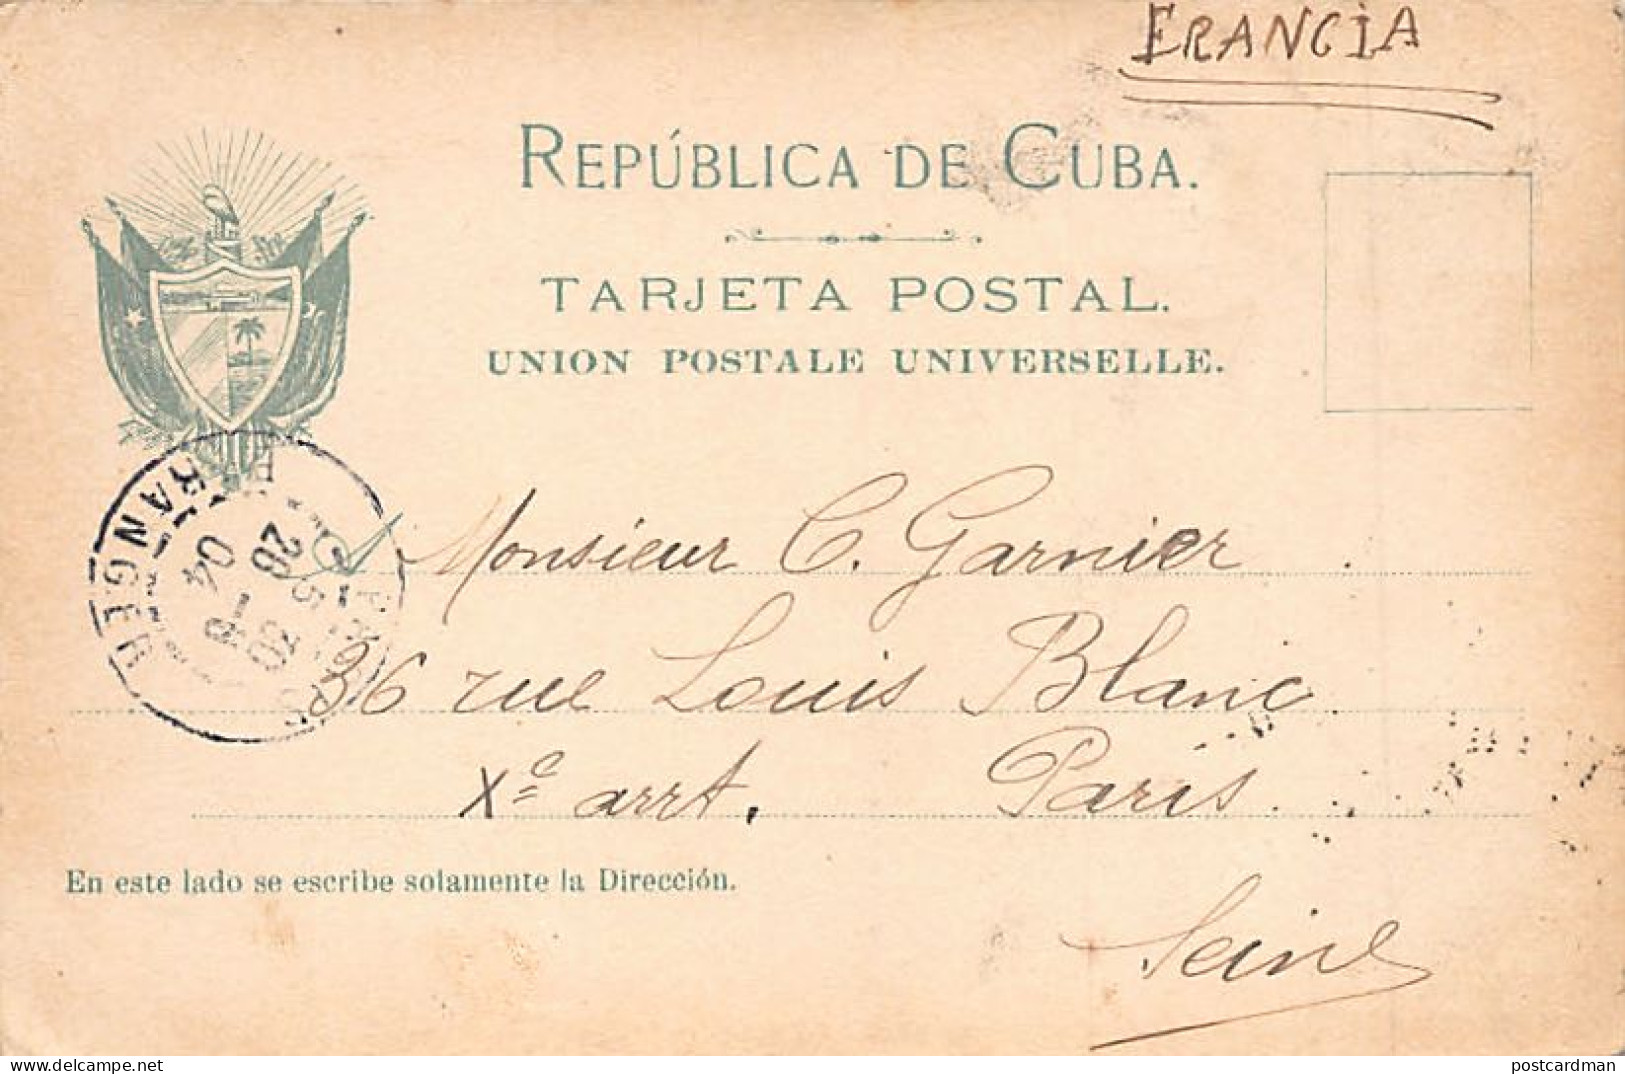 FRANCIA
REPÚBLICA DE CUBA.
TARJETA POSTAL.
UNION POSTALE UNIVERSELLE.
Monsieur C. Garnier
36 rue Louis Blanc
Xe arrt. Paris.
En este lado se escribe solamente la Dirección.
Seine
ETRANGER
26 5
04
delcampe.net
postcardman